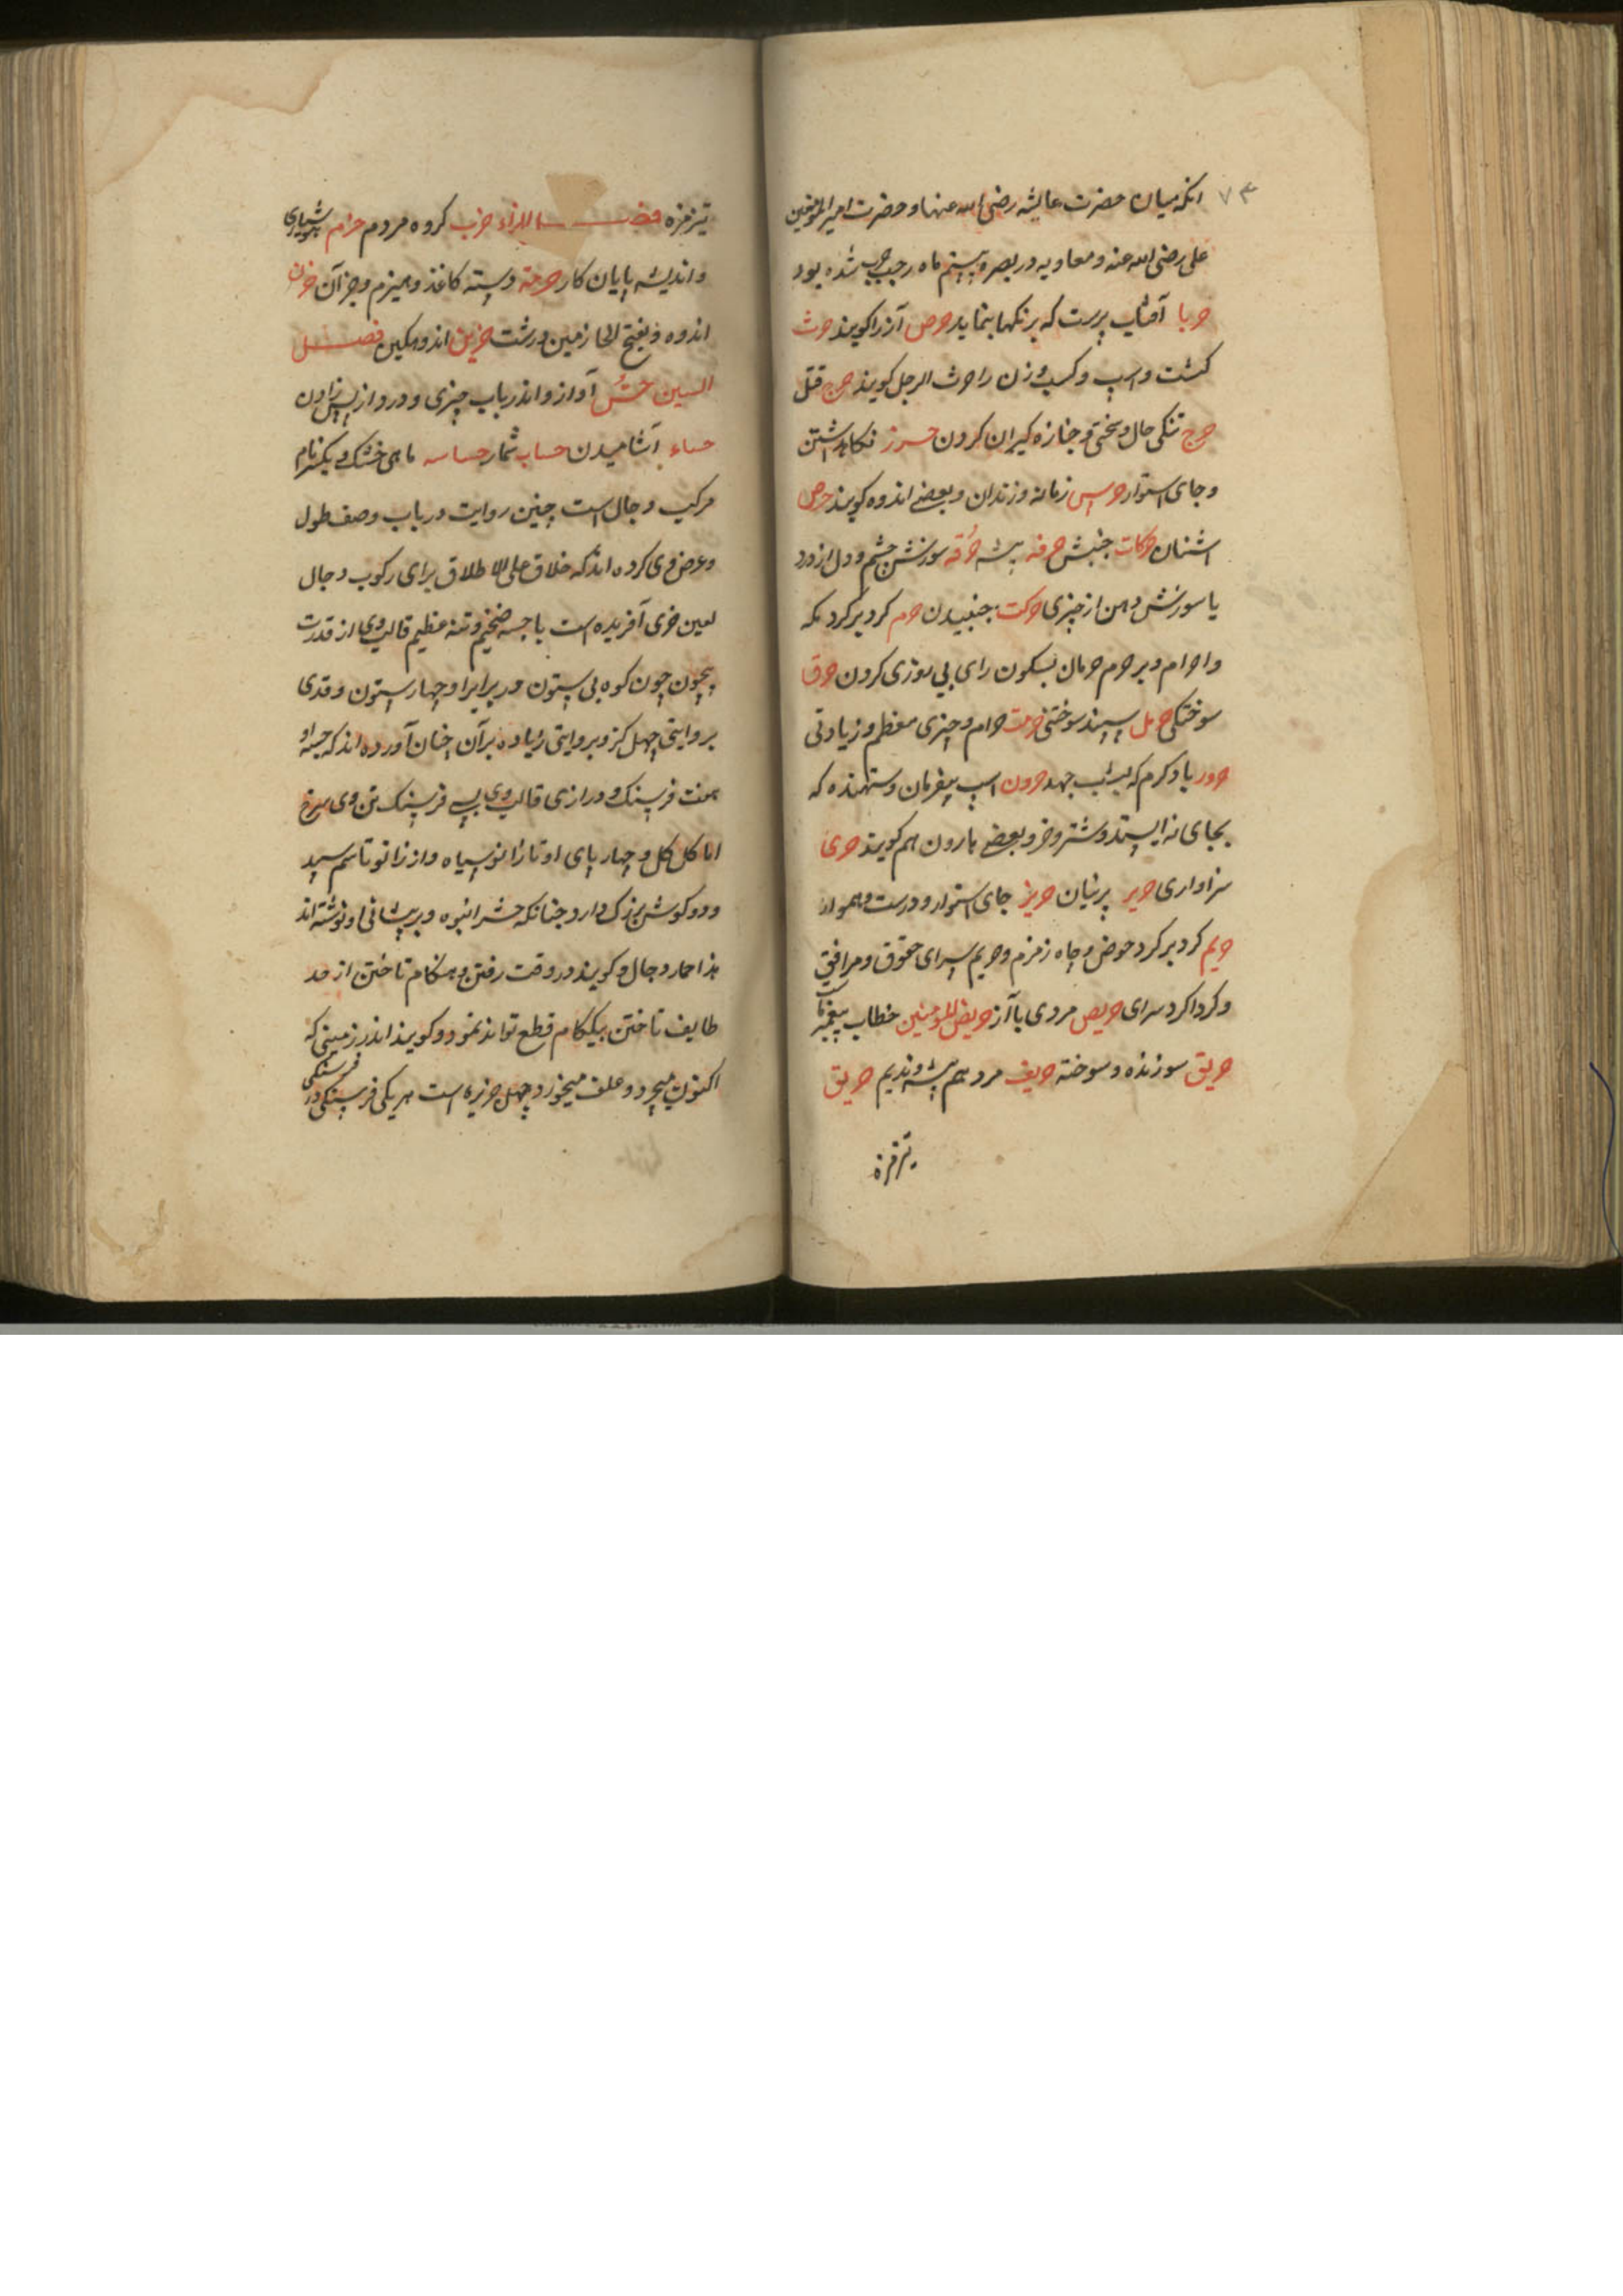 ۷۳
انکه میان حضرت عایشه رضی الله عنها و حضرت امیر المؤمنین
علی رضی الله عنه و معاویه در بصره بیستم ماه رجب حرب شده بود
حربا آفتاب پرست که برنکها بنماید حرص آز را کویند حرث
کشت و اسپ و کسب و زن را حرث الرجل کویند حرج قتل
حرج تنکی حال و سختی و جنازه کیران کردن حسرز نکاه داشتن
و جای استوار حرس زمانه و زندان و بعضے اندوه کویند حرض
اشنان حرکات جنبش حرفه پیشه حرقه سوزش چشم و دل از درد
یا سوزش دهن از چیزی حرکت جنبیدن حرم کرد بر کرد مکه
و احرام و بر حرم حرمان بسکون رای بی روزی کردن حرق
سوختکی حرمل سپند سوختنی حرمت حرام و چیزی معظم و زیادتی
حرور باد کرم که بشب جهد حرون اسپ بیفرمان و ستهنده که
بجای نه ایستد و شتر و خر و بعضے هارون هم کویند حری
سزاواری حریر پرنیان حریز جای استوار و درست و هموار
حریم کرد بر کرد حوض و چاه زمزم و حریم سرای حقوق و مرافق
و کرداکرد سرای حریص مردی با آز حریص للمومنین خطاب پیغمبر
حریق سوزنده و سوخته حریف مرد هم پیشه و ندیم حریق
تیزمزه
تیزمزه فصــــل الزاء حزب کروه مردم حزام هشیاری
و اندیشه پایان کار حزمة دسته کاغذ و هیزم و جز آن حزن
اندوه و بفتح الحا زمین درشت حزین اندوهکین فصــــل
السین حسّ آواز و اندریاب چیزی و درد از پس زادن
حساء آشامیدن حساب شمار حساسه ماهی خشک و یکسر نام
مرکب دجال است چنین روایت در باب وصف طول
و عرض وی کرده اند که خلاق علی الاطلاق برای رکوب دجال
لعین خری آفریده است با جسه ضخیم و تنه عظیم قالب وی از قدرت
بیچون چون کوه بی ستون در برابر او چهار ستون و قدی
بروایتی چهل کز و بروایتی زیاده بر آن چنان آورده اند که جسه او
هفت فرسنک و درازی قالب وی سی فرسنک تن وی سرخ
اما کل کل و چهار پای او تا زانو سیاه و از زانو تا سم سپید
و دو کوش بزرک دارد چنانکه حشر انبوه و بر پیشانی او نوشته اند
هذا حمار دجال و کویند در وقت رفتن و هنکام تاختن از حد
طایف تاختن بیکام قطع تواند نمود و کویند اندر زمینی که
اکنون میچرد و علف میخورد چهل جزیره است هر یکی فرسنکی در
فرسنکی